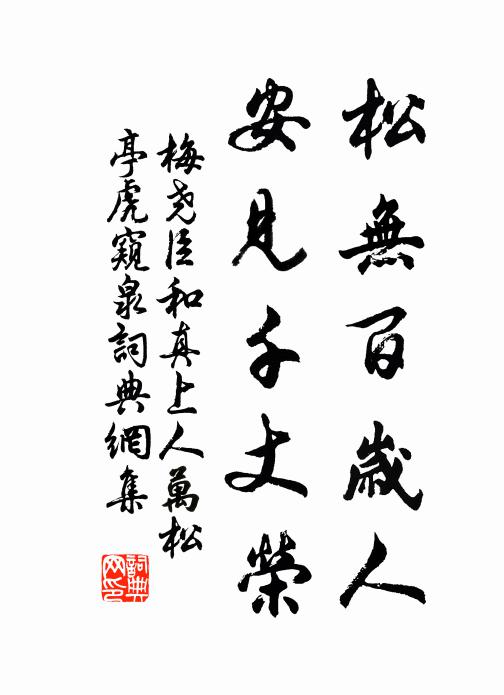 松無百歲人
安見千丈榮
梅堯臣和真上人萬松
亭虎窺泉詞典網集
詞典
网印